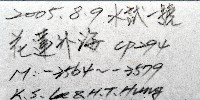 2005.8.9 水試一號
花蓮外海 CP294
M:--3564~--3579
K.S. Lee & H.T. Hung